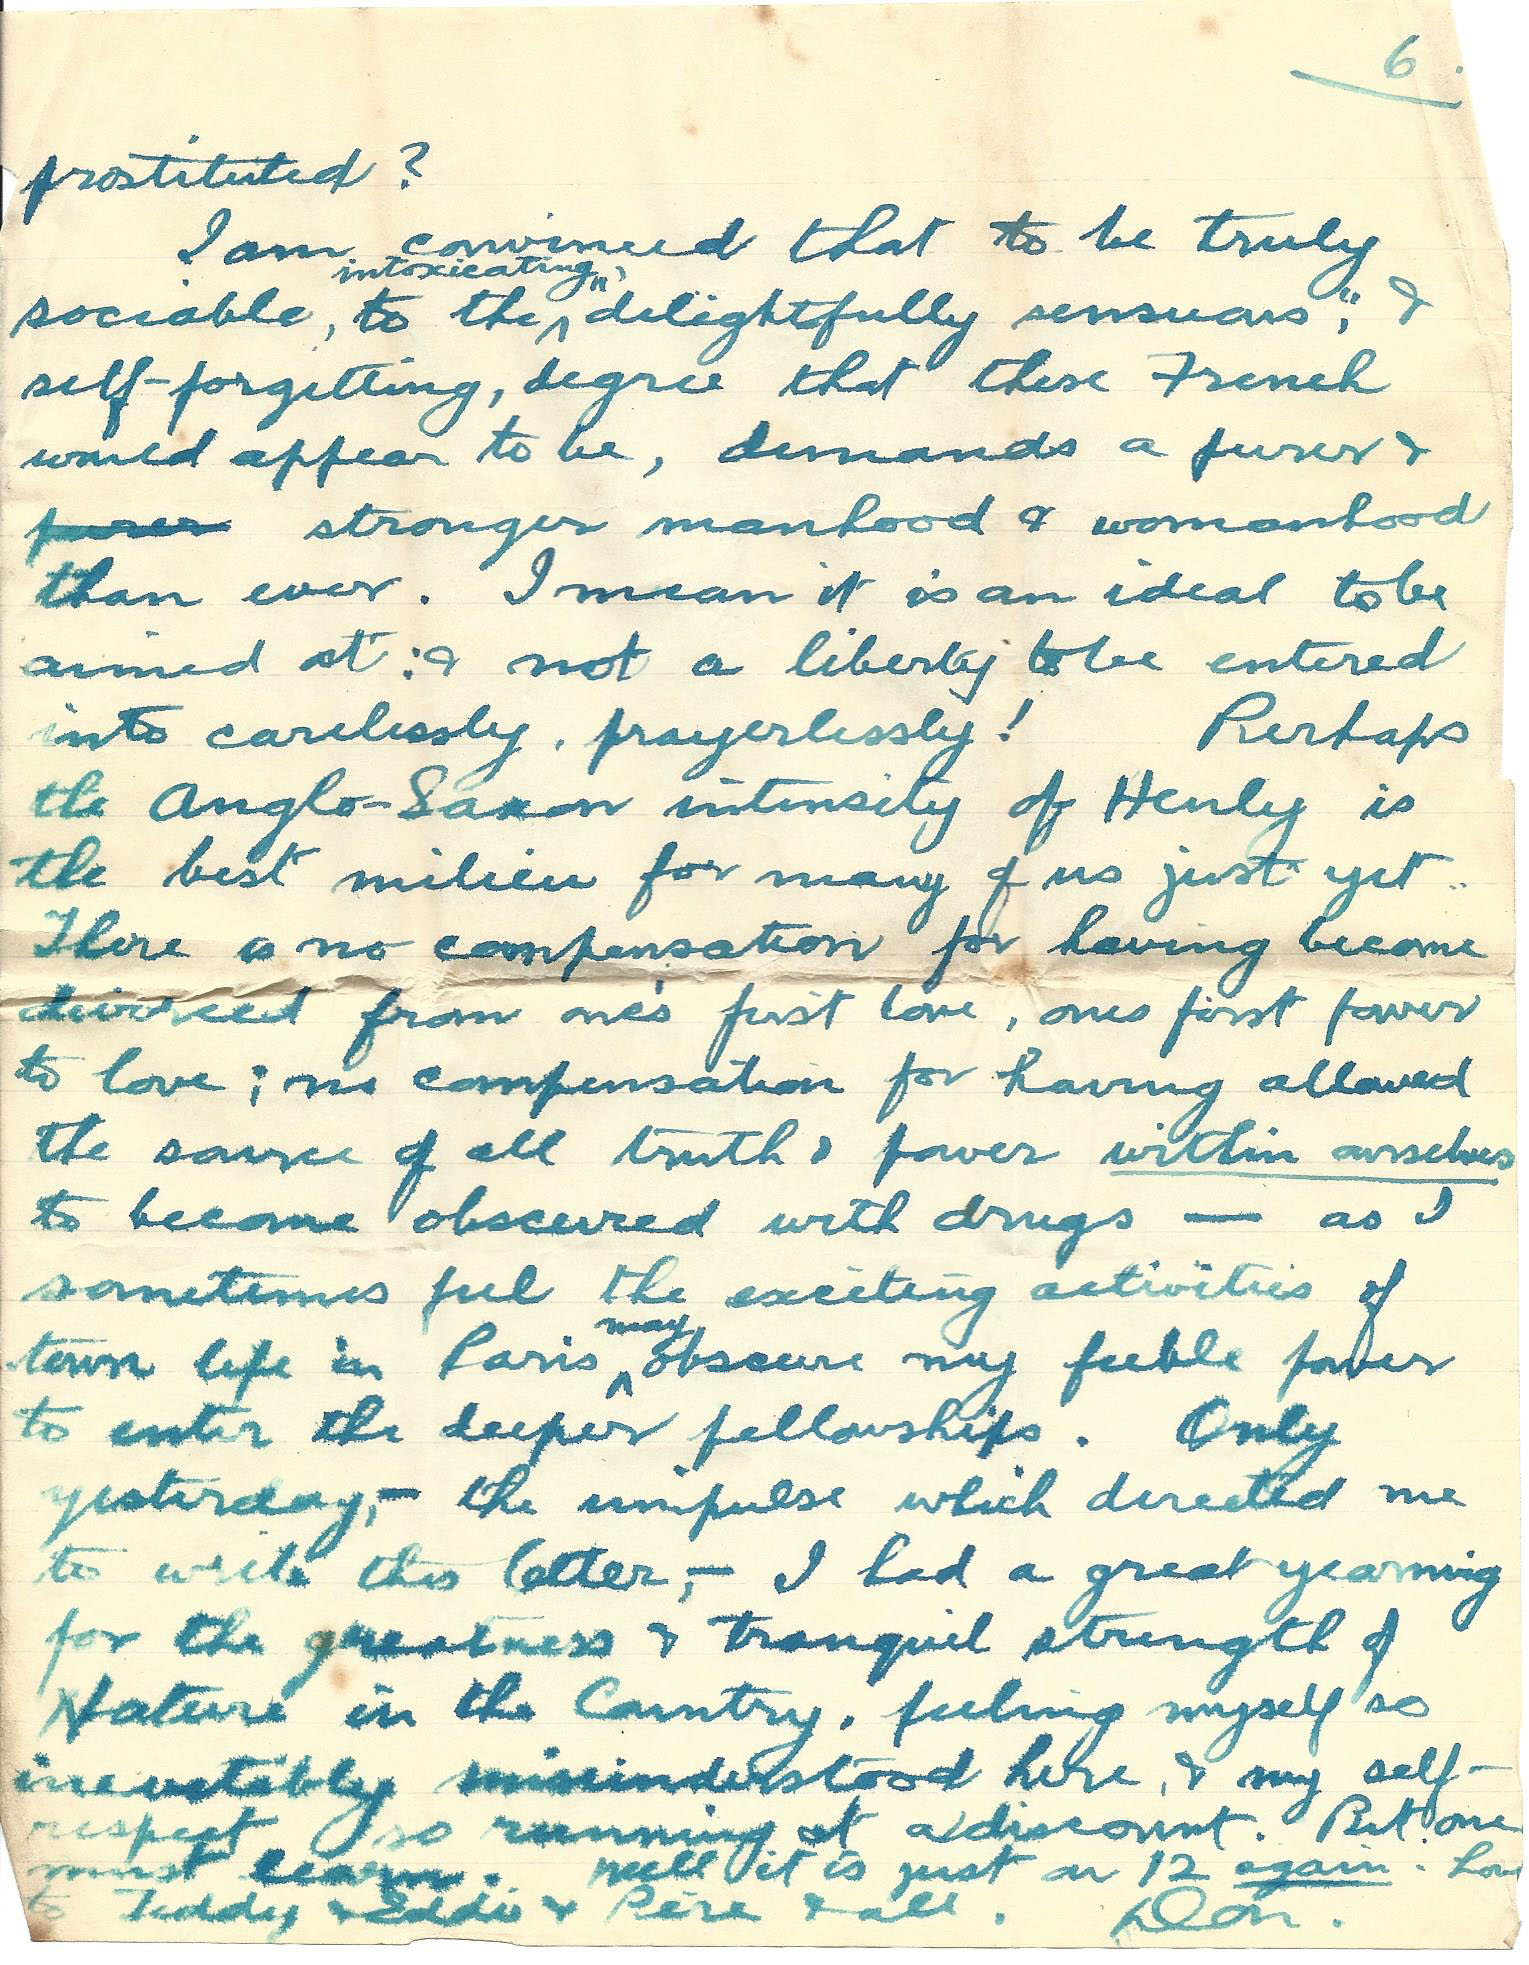 6.
prostituted?
I am convinced that to be truly
intoxicating",
sociable, to the ^ delightfully sensuous", &
self-forgetting, degree that these French
would appear to be, demands a purer &
purer stronger manhood & womanhood
than ever. I mean it is an ideal to be
aimed at: & not a liberty to be entered
into carelessly, prayerlessly! Perhaps
the Anglo-Saxon intensity of Henly is
the best milieu for many of us just yet..
There is no compensation for having become
divorced from one's first love, ones first power
to love; no compensation for having allowed
the source of all truth & power within ourselves
to become obscured with drugs — as I
sometimes feel the exciting activities of
may
town life in Paris ^ obscure my feeble power
to enter the deeper fellowships. Only
yesterday,- the impulse which directed me
to write this letter,- I had a great yearning
for the greatness & tranquil strength of
Nature in the Country, feeling myself so
inevitably misunderstood here, & my self-
respect so running at a discount. But one
must learn. Well it is just on 12 again. Love
to Teddy & Eddie & Père & all. Don.